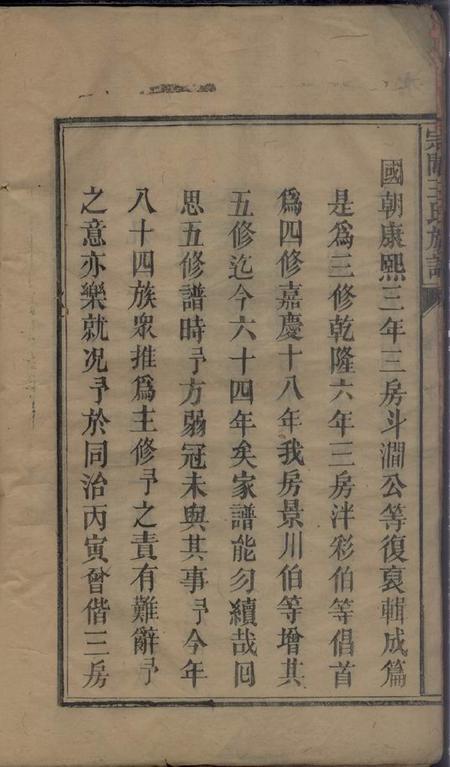 國朝康熙三年三房斗澗公等復裒輯成篇
是為三修乾隆六年三房泮彩伯等倡首
為四修嘉慶十八年我房景川伯等增其
五修迄今六十四年矣家譜能勿續哉回
思五修譜時予方弱冠未與其事予今年
八十四族衆推為主修予之責有難辭予
之意亦樂就况予於同治丙寅曾偕三房